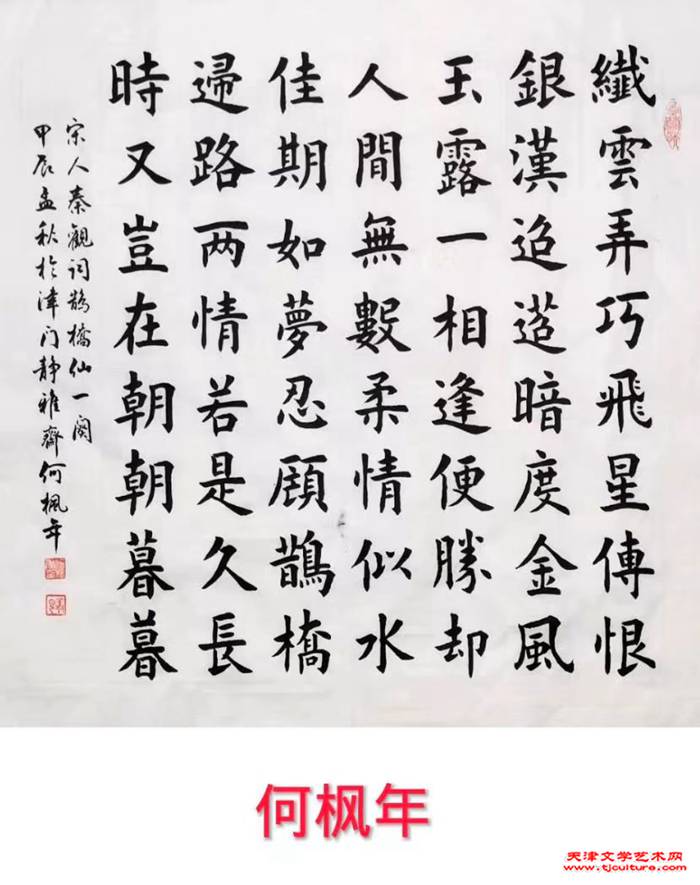 纖雲弄巧飛星傳恨
銀漢迢遥暗度金風
玉露一相逢便勝却
人間無數柔情似水
佳期如夢忍顾鵲橋
歸路两情若是久長
時又豈在朝朝暮暮
宋人秦觀词鹊橋仙一阕
甲辰孟秋於津门静雅齋何楓年
何枫年
天津文学艺术网
www.tjculture.com